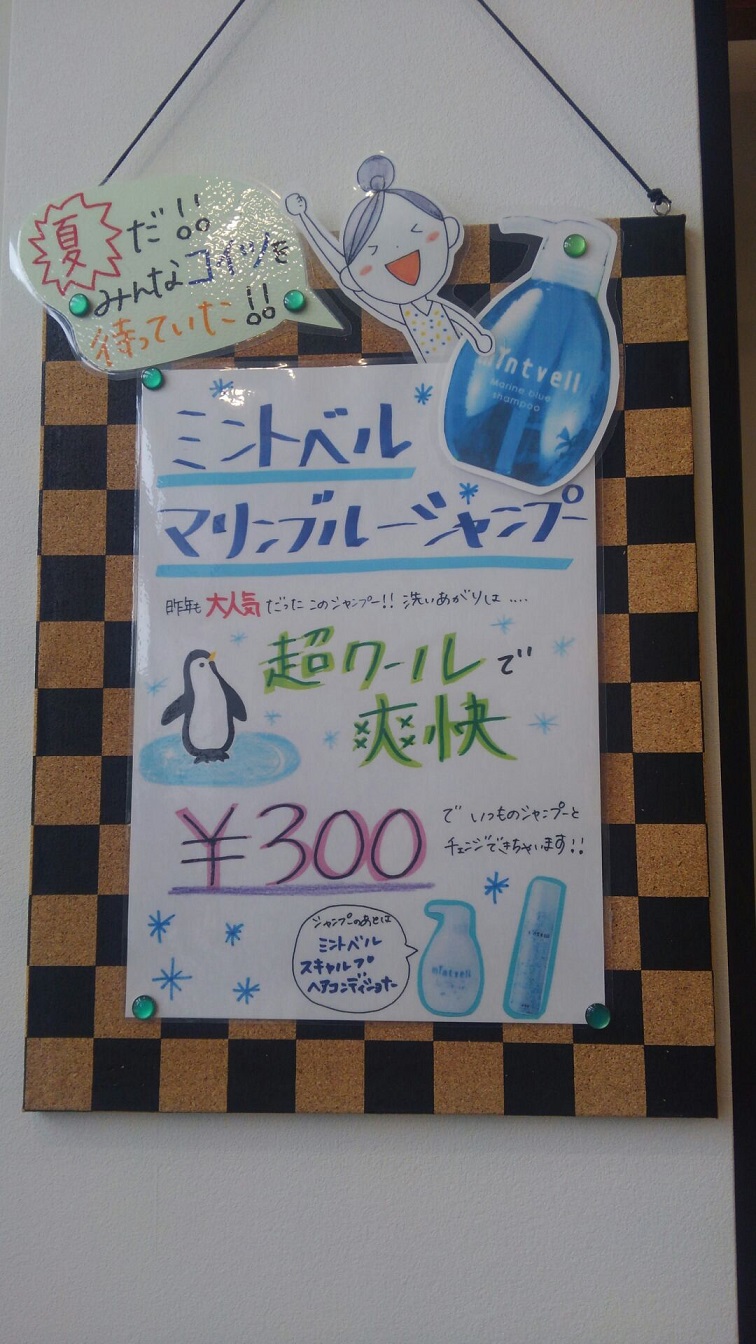 夏だ!!
みんなコイツを
待っていた!!
mintvell
Marine blue
shampoo
ミントベル
マリンブルーシャンプー
昨年も大人気だったこのシャンプー!! 洗いあがりは....
超クールで
爽快
¥300
で いつものシャンプーと
チェンジできちゃいます!!
シャンプーのあとは
ミントベル
スキャルプ
ヘアコンディショナー
mintvell